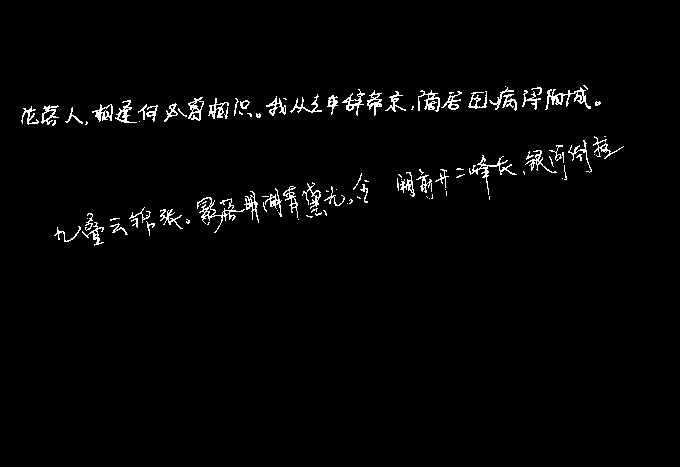 沦落人,相逢何必曾相识。我从去年辞帝京,谪居卧病浔阳城。
九叠云锦张。影落明湖青黛光,金 阙前开二峰长,银河倒挂